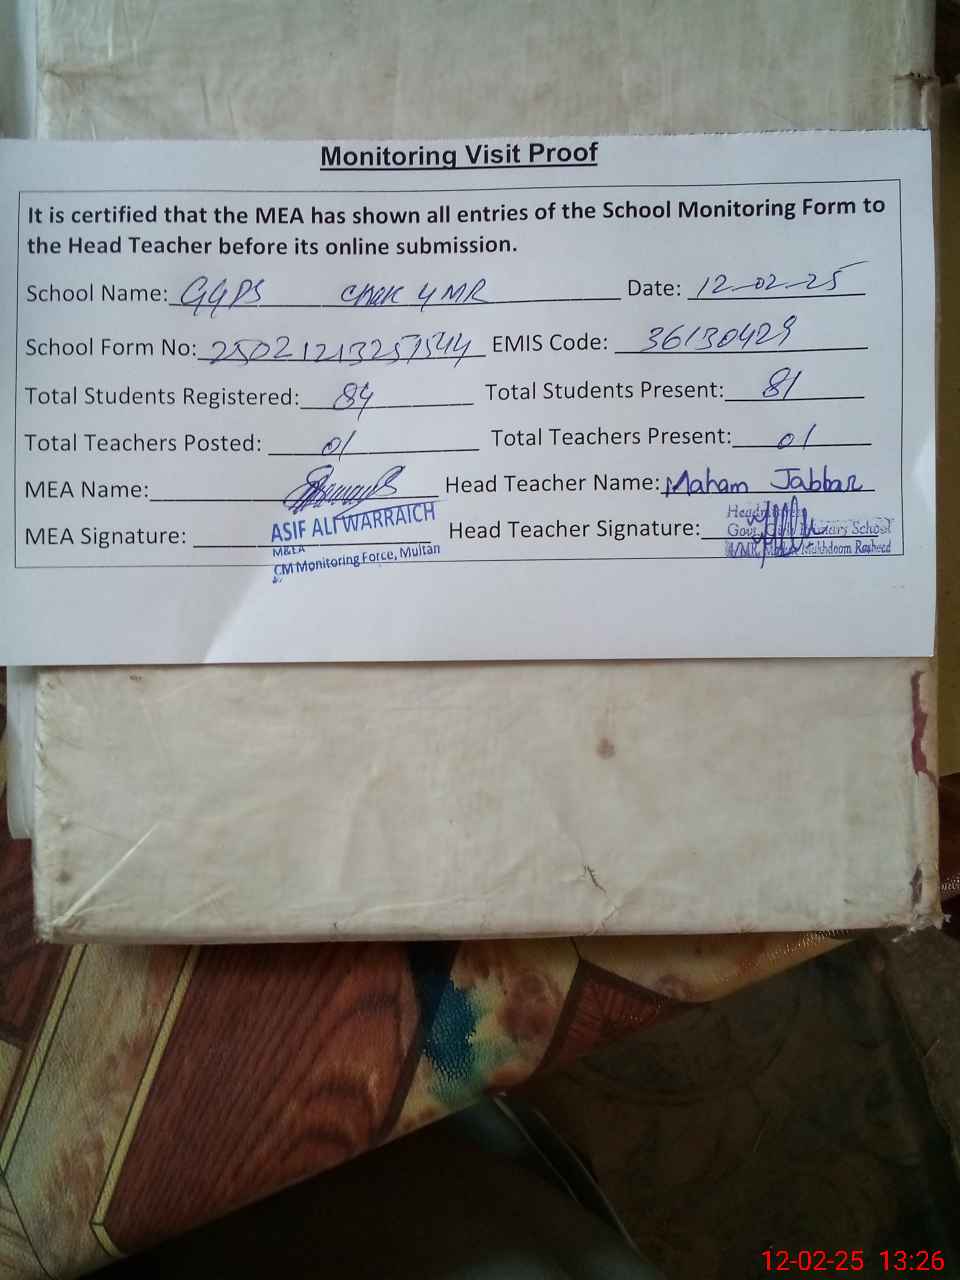 Monitoring Visit Proof
It is certified that the MEA has shown all entries of the School Monitoring Form to
the Head Teacher before its online submission.
School Name: GGPS Chak 4 MR Date: 12-02-25
School Form No: 250212132571544 EMIS Code: 36130429
Total Students Registered: 84 Total Students Present: 81
Total Teachers Posted: 01 Total Teachers Present: 01
MEA Name: Head Teacher Name: Maham Jabbar
MEA Signature: ASIF ALI WARRAICH Head Teacher Signature:
M&EA
CM Monitoring Force, Multan
Govt. School
4/MR Makhdoom Rasheed
12-02-25 13:26